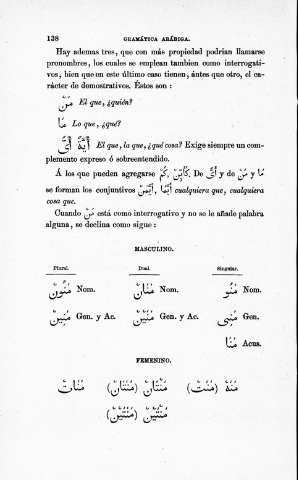 138 GRAMÁTICA ARÁBIGA.
Hay ademas tres, que con más propiedad podrian llamarse
pronombres, los cuales se emplean tambien como interrogati-
vos, bien que en este último caso tienen, ántes que otro, el ca-
rácter de demostrativos. Éstos son :
مَنْ El que, ¿quién?
مَا Lo que, ¿qué?
أَىٌّ أَيَّةٌ El que, la que, ¿qué cosa? Exige siempre un com-
plemento expreso ó sobreentendido.
Á los que pueden agregarse كَمْ, كَأَيِّنْ. De أَىٌّ y de مَنْ y مَا
se forman los conjuntivos أَيُّمَنْ, أَيُّمَا cualquiera que, cualquiera
cosa que.
Cuando مَنْ está como interrogativo y no se le añade palabra
alguna, se declina como sigue :
MASCULINO.
Plural. Dual. Singular.
مَنُونْ Nom. مَنَانْ Nom. مَنُو Nom.
مَنِينْ Gen. y Ac. مَنَيْنْ Gen. y Ac. مَنِى Gen.
مَنَا Acus.
FEMENINO.
مَنَاتْ مَنْتَانْ (مَنَتَانْ) مَنَهْ (مَنْتْ)
مَنْتَيْنْ (مَنَتَيْنْ)